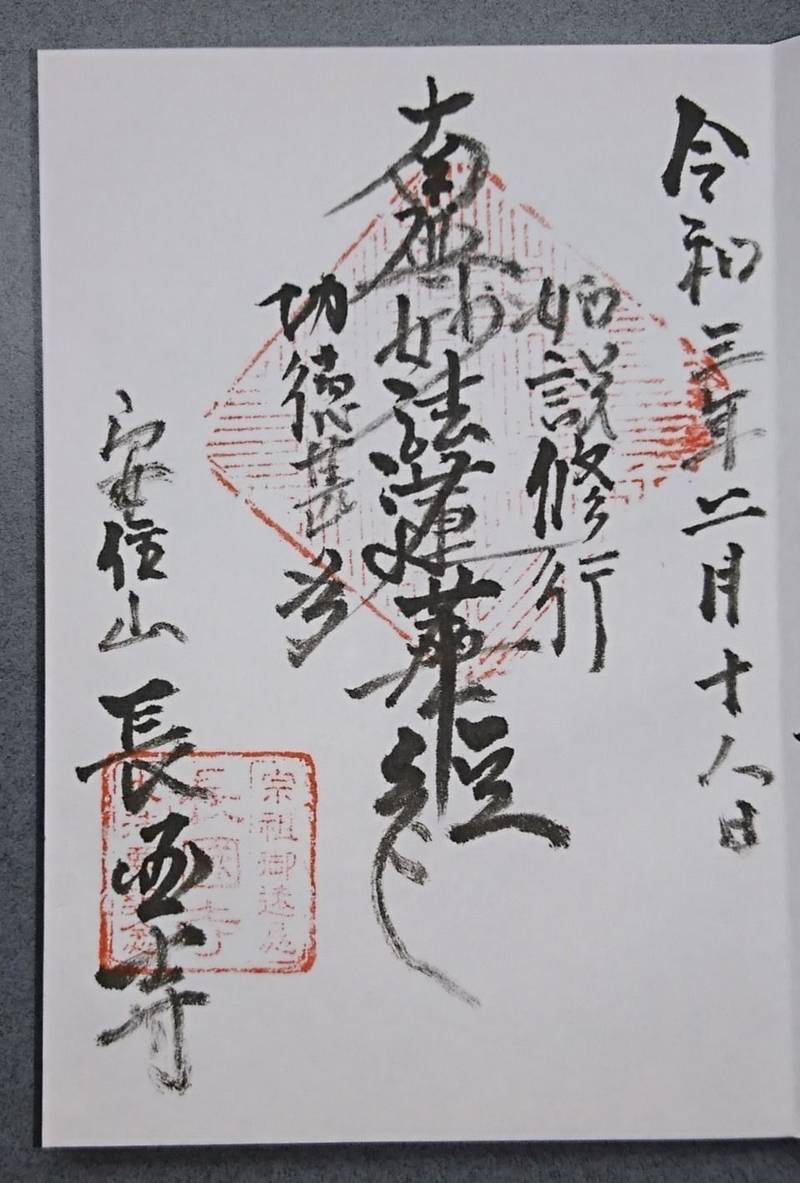 令和三年二月十八日
如説修行
南無妙法蓮華経
功徳甚多
安住山
長国寺
宗祖御遠忌
長國寺